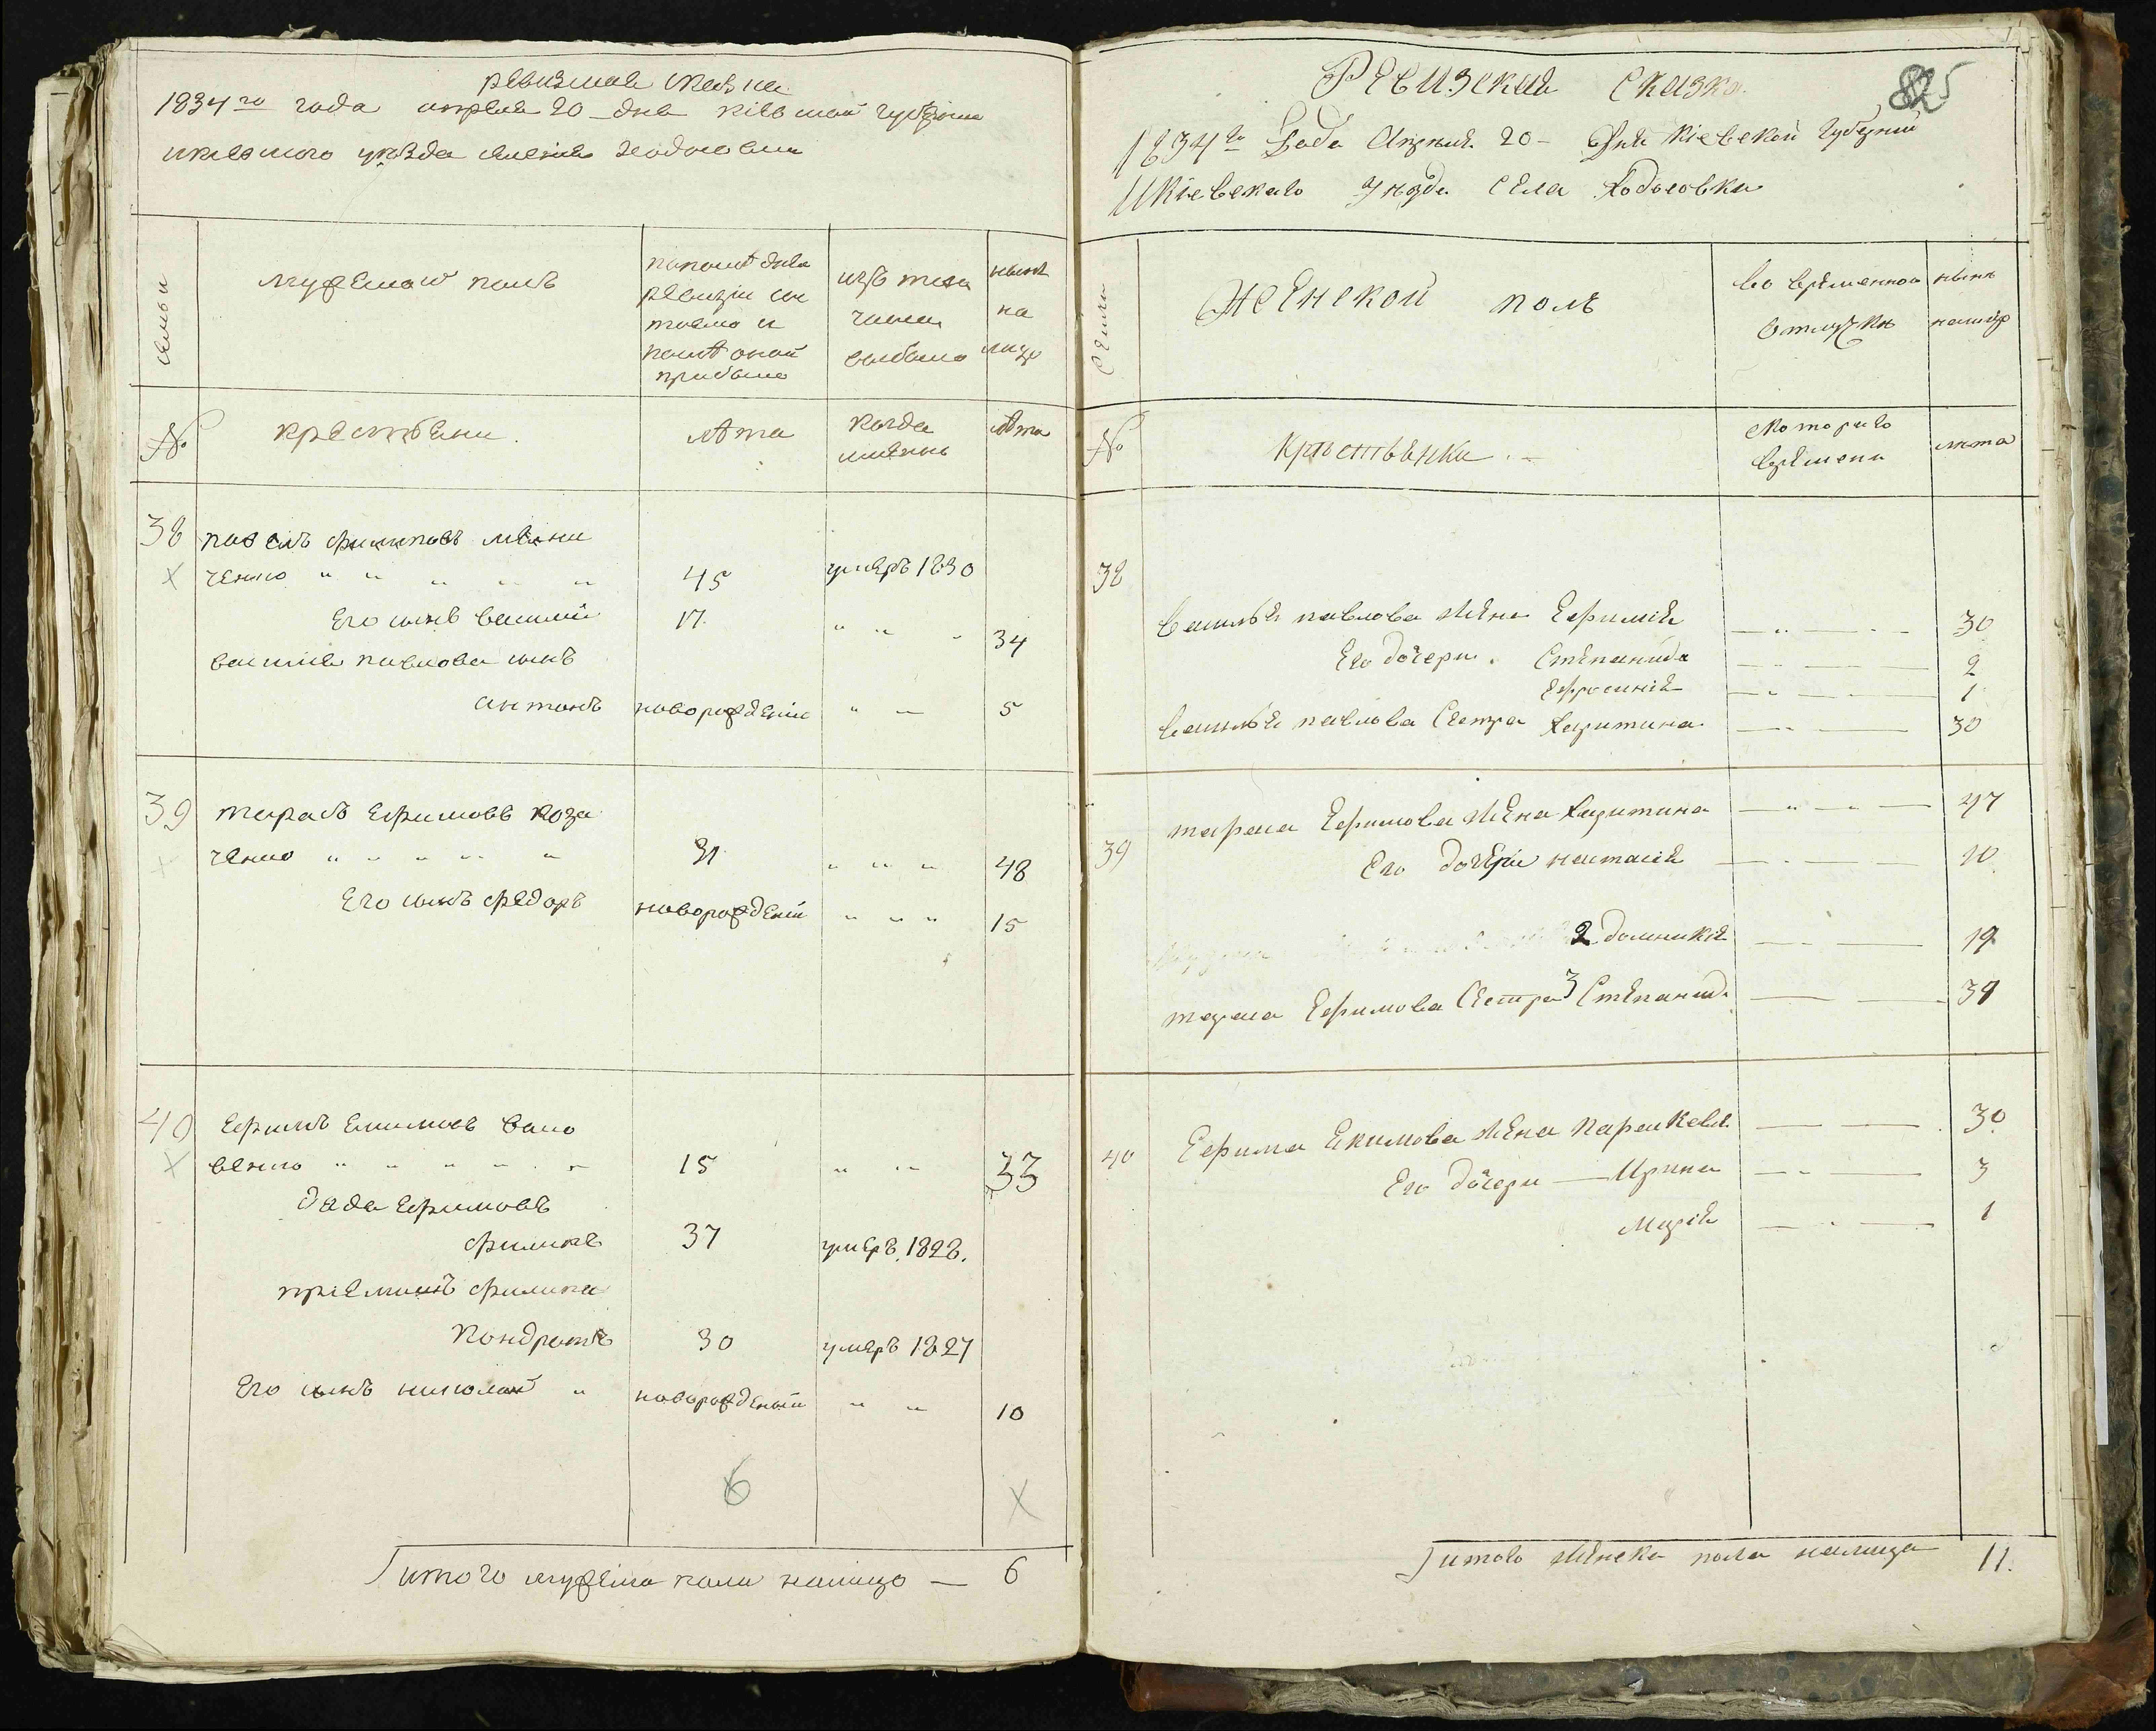 ревизская сказка
1834го года апреля 20 дня киевской губернии
икиевского уезда селения ходосовки
семьи
мужеской полъ
попоследней ревизии состояло и после оной прибыло
изъ того числа выбыло
ныне на лицо
№
крестьяни.
лета
когда именно
лета
38 павелъ филиповъ мели
ченко " " " " " 45 умеръ 1830
его сынъ василий 17. " " " 34
василия павлова сынъ
антонъ новорожденъ " — 5
39 тарасъ ефимовъ коза
ченко " " " " " 31 " " " 48
его сынъ федоръ новорожденъ " " " 15
40 ефимъ екимовъ вано
венко " " " " " 15 " " 33
дядя ефимовъ
филипъ 37 умеръ 1828.
приемышъ филипа
кондратъ 30 умеръ 1827
его сынъ николай " новорожденый " " 10
6 X
итого мужеска пола налицо — 6
825
Ревизская Сказка.
1834го Года Апреля 20 – Дня Кіевской Губернии
ИКіевскаго Уезда Села Ходосовки
Семьи
Женской полъ
во временной отлучке
ныне налицо
№
Крестьянки. –
Скоторого времени
лета
38
Василья павлова жена Ефимія — " — 30
Его дочери. Степанида — 2
Ефросинія — 1
Васильи павлова Сестра Харитина — 30
39 тараса Ефимова жена Харитина — " — " — 47
Его дочери настасія — 10
2 домникія — 19
тараса Ефимова Сестра 3 Степанида — 39
40 Ефима Екимова жена Параскева — 30
Его дочери — Ирина — 3
Марія — 1
итого женска пола налицо 11.